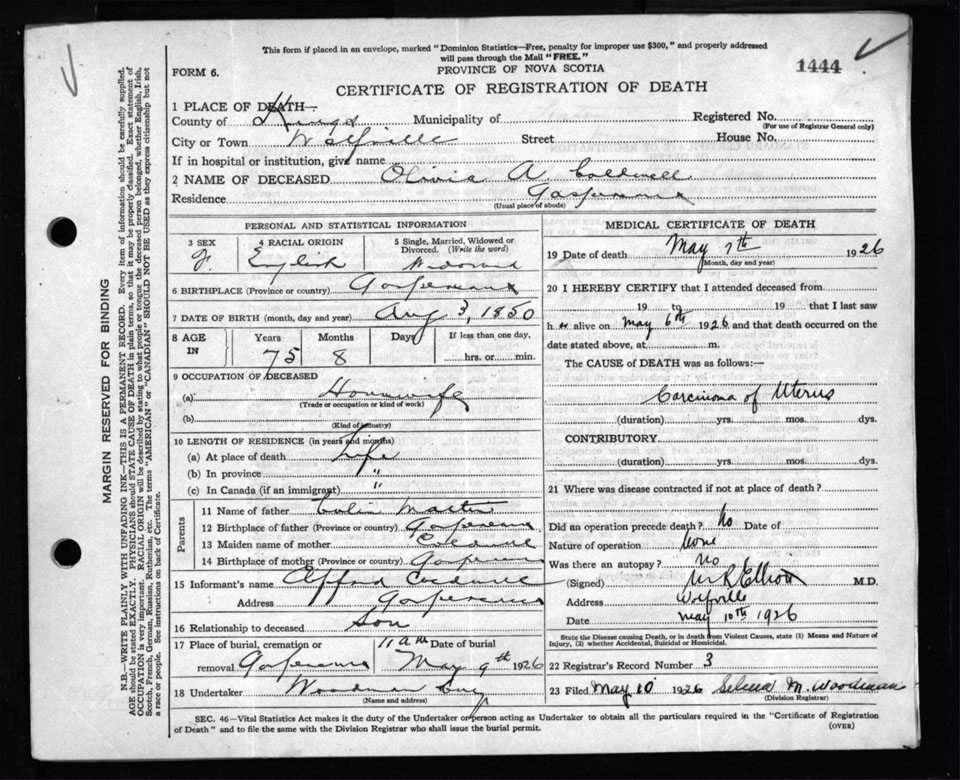 This form if placed in an envelope, marked "Dominion Statistics—Free, penalty for improper use $300," and properly addressed
will pass through the Mail "FREE."
FORM 6.
PROVINCE OF NOVA SCOTIA
1444
CERTIFICATE OF REGISTRATION OF DEATH
1 PLACE OF DEATH—
County of Kings Municipality of Registered No.
(For use of Registrar General only)
City or Town Wolfville Street House No.
If in hospital or institution, give name
2 NAME OF DECEASED Olivia A Coldwell
Residence Gaspereaux
(Usual place of abode)
PERSONAL AND STATISTICAL INFORMATION
3 SEX 4 RACIAL ORIGIN 5 Single, Married, Widowed or
Divorced. (Write the word)
F. English Widowed
6 BIRTHPLACE (Province or country) Gaspereaux
7 DATE OF BIRTH (month, day and year) Aug 3, 1850
8 AGE IN Years Months Days If less than one day,
75 8 hrs. or min.
9 OCCUPATION OF DECEASED
(a) Housewife
(Trade or occupation or kind of work)
(b)
(Kind of industry)
10 LENGTH OF RESIDENCE (in years and months)
(a) At place of death Life
(b) In province "
(c) In Canada (if an immigrant) "
Parents
11 Name of father Martin
12 Birthplace of father (Province or country) Gaspereaux
13 Maiden name of mother Coldwell
14 Birthplace of mother (Province or country) Gaspereaux
15 Informant's name Coldwell
Address Gaspereaux
16 Relationship to deceased Son
17 Place of burial, cremation or 11 am Date of burial
removal Gaspereaux May 9th 1926
18 Undertaker Woodman
(Name and address)
MEDICAL CERTIFICATE OF DEATH
19 Date of death May 7th 1926
(Month, day and year)
20 I HEREBY CERTIFY that I attended deceased from
19 to 19 that I last saw
h er alive on May 6th 1926 and that death occurred on the
date stated above, at m.
The CAUSE of DEATH was as follows:—
Carcinoma of Uterus
(duration) yrs. mos. dys.
CONTRIBUTORY
(duration) yrs. mos. dys.
21 Where was disease contracted if not at place of death?
Did an operation precede death? No Date of
Nature of operation None
Was there an autopsy? No
(Signed) M R Elliott M.D.
Address Wolfville
Date May 10th 1926
State the Disease causing Death, or in death from Violent Causes, state (1) Means and Nature of
Injury, (2) whether Accidental, Suicidal or Homicidal.
22 Registrar's Record Number 3
23 Filed May 10 1926 Selena M. Woodman
(Division Registrar)
SEC. 46—Vital Statistics Act makes it the duty of the Undertaker or person acting as Undertaker to obtain all the particulars required in the "Certificate of Registration
of Death" and to file the same with the Division Registrar who shall issue the burial permit.
(OVER)
MARGIN RESERVED FOR BINDING
N.B.—WRITE PLAINLY WITH UNFADING INK—THIS IS A PERMANENT RECORD. Every item of information should be carefully supplied.
AGE should be stated EXACTLY. PHYSICIANS should STATE CAUSE OF DEATH in plain terms, so that it may be properly classified. Exact statement of
OCCUPATION is very important. RACIAL ORIGIN will be described by stating to what people or tongue the deceased person belonged, whether English, Irish,
Scotch, French, German, Russian, Ruthenian, etc. The terms "AMERICAN" or "CANADIAN" SHOULD NOT BE USED as they express citizenship but not
a race or people. See instructions on back of Certificate.